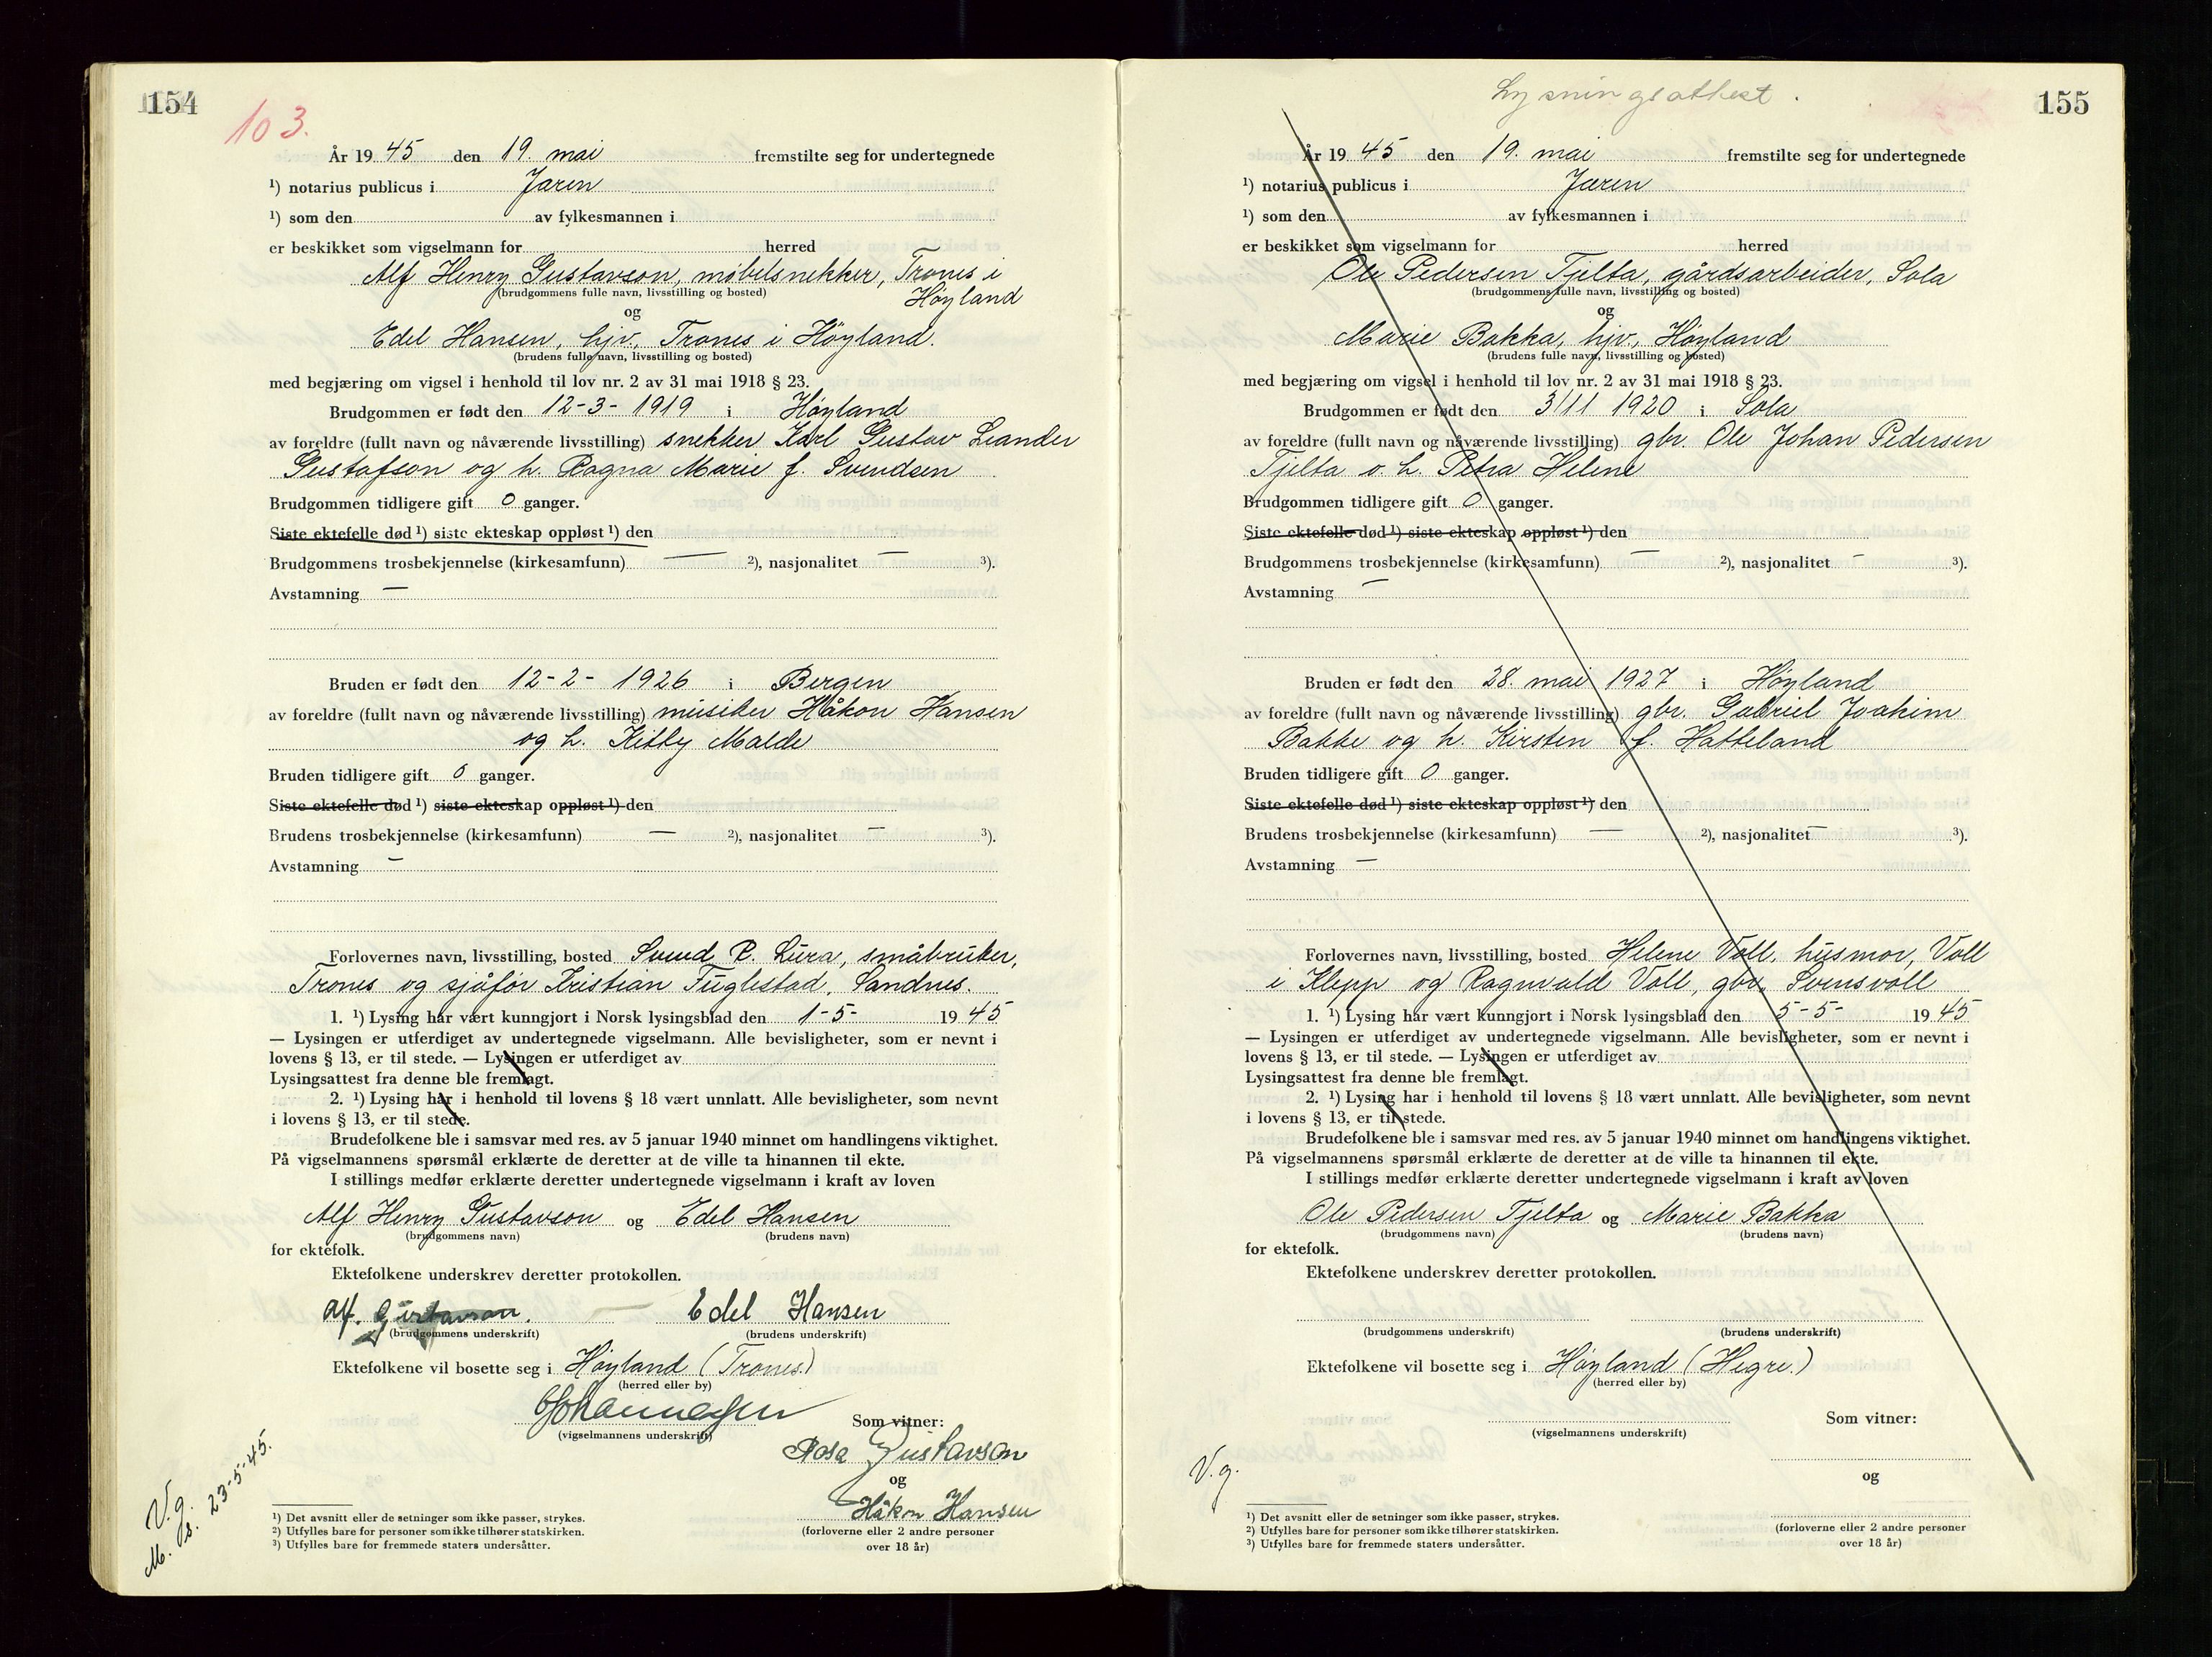 154
103.
År 1945 den 19. mai fremstilte seg for undertegnede
¹) notarius publicus i Jæren
¹) som den av fylkesmannen i
er beskikket som vigselmann for herred
Alf Henry Gustavson, møbelsnekker, Trones i
(brudgommens fulle navn, livsstilling og bosted) Høyland
og
Edel Hansen, hjv., Trones i Höyland.
(brudens fulle navn, livsstilling og bosted)
med begjæring om vigsel i henhold til lov nr. 2 av 31 mai 1918 § 23.
Brudgommen er født den 12-3-1919 i Høyland
av foreldre (fullt navn og nåværende livsstilling) snekker Karl Gustav Leander
Gustafson og h. Ragna Marie f. Svendsen
Brudgommen tidligere gift 0 ganger.
Siste ektefelle død ¹) siste ekteskap oppløst ¹) den
Brudgommens trosbekjennelse (kirkesamfunn) — ²), nasjonalitet — ³).
Avstamning —
Bruden er født den 12-2-1926 i Bergen
av foreldre (fullt navn og nåværende livsstilling) musiker Håkon Hansen
og h. Kitty Malde
Bruden tidligere gift 0 ganger.
Siste ektefelle død ¹) siste ekteskap oppløst ¹) den
Brudens trosbekjennelse (kirkesamfunn) — ²), nasjonalitet — ³).
Avstamning —
Forlovernes navn, livsstilling, bosted Svend R. Lura, småbruker,
Trones og sjåfør Kristian Fuglestad, Sandnes.
1. ¹) Lysing har vært kunngjort i Norsk lysingsblad den 1-5- 1945
— Lysingen er utferdiget av undertegnede vigselmann. Alle bevisligheter, som er nevnt i
lovens § 13, er til stede. — Lysingen er utferdiget av
Lysingsattest fra denne ble fremlagt.
2. ¹) Lysing har i henhold til lovens § 18 vært unnlatt. Alle bevisligheter, som nevnt
i lovens § 13, er til stede.
Brudefolkene ble i samsvar med res. av 5 januar 1940 minnet om handlingens viktighet.
På vigselmannens spørsmål erklærte de deretter at de ville ta hinannen til ekte.
I stillings medfør erklærte deretter undertegnede vigselmann i kraft av loven
Alf Henry Gustavson og Edel Hansen
(brudgommens navn) (brudens navn)
for ektefolk.
Ektefolkene underskrev deretter protokollen.
Alf. Gustavson. Edel Hansen
(brudgommens underskrift) (brudens underskrift)
Ektefolkene vil bosette seg i Høyland (Trones.)
(herred eller by)
Som vitner:
(vigselmannens underskrift)
Rosa Gustavson
og
Håkon Hansen
(forloverne eller 2 andre personer
over 18 år)
V.g.
M. s. 23-5-45.
¹) Det avsnitt eller de setninger som ikke passer, strykes.
²) Utfylles bare for personer som ikke tilhører statskirken.
³) Utfylles bare for fremmede staters undersåtter.
Lysningsattest.
155
År 1945 den 19. mai fremstilte seg for undertegnede
¹) notarius publicus i Jæren
¹) som den av fylkesmannen i
er beskikket som vigselmann for herred
Ole Pedersen Tjelta, gårdsarbeider, Sola
(brudgommens fulle navn, livsstilling og bosted)
og
Marie Bakka, hjv., Høyland
(brudens fulle navn, livsstilling og bosted)
med begjæring om vigsel i henhold til lov nr. 2 av 31 mai 1918 § 23.
Brudgommen er født den 3/11 1920 i Sola
av foreldre (fullt navn og nåværende livsstilling) gbr. Ole Johan Pedersen
Tjelta o. h. Petra Helene
Brudgommen tidligere gift 0 ganger.
Siste ektefelle død ¹) siste ekteskap oppløst ¹) den
Brudgommens trosbekjennelse (kirkesamfunn) — ²), nasjonalitet — ³).
Avstamning —
Bruden er født den 28. mai 1927 i Høyland
av foreldre (fullt navn og nåværende livsstilling) gbr. Gabriel Joakim
Bakke og h. Kirsten f. Hatteland
Bruden tidligere gift 0 ganger.
Siste ektefelle død ¹) siste ekteskap oppløst ¹) den
Brudens trosbekjennelse (kirkesamfunn) — ²), nasjonalitet — ³).
Avstamning —
Forlovernes navn, livsstilling, bosted Helene Voll, husmor, Voll
i Klepp og Ragnvald Voll, gbr., Svensvoll
1. ¹) Lysing har vært kunngjort i Norsk lysingsblad den 5-5- 1945
— Lysingen er utferdiget av undertegnede vigselmann. Alle bevisligheter, som er nevnt i
lovens § 13, er til stede. — Lysingen er utferdiget av
Lysingsattest fra denne ble fremlagt.
2. ¹) Lysing har i henhold til lovens § 18 vært unnlatt. Alle bevisligheter, som nevnt
i lovens § 13, er til stede.
Brudefolkene ble i samsvar med res. av 5 januar 1940 minnet om handlingens viktighet.
På vigselmannens spørsmål erklærte de deretter at de ville ta hinannen til ekte.
I stillings medfør erklærte deretter undertegnede vigselmann i kraft av loven
Ole Pedersen Tjelta og Marie Bakka
(brudgommens navn) (brudens navn)
for ektefolk.
Ektefolkene underskrev deretter protokollen.
(brudgommens underskrift) (brudens underskrift)
Ektefolkene vil bosette seg i Høyland (Hegre.)
(herred eller by)
Som vitner:
(vigselmannens underskrift)
V.g.
og
(forloverne eller 2 andre personer
over 18 år)
¹) Det avsnitt eller de setninger som ikke passer, strykes.
²) Utfylles bare for personer som ikke tilhører statskirken.
³) Utfylles bare for fremmede staters undersåtter.